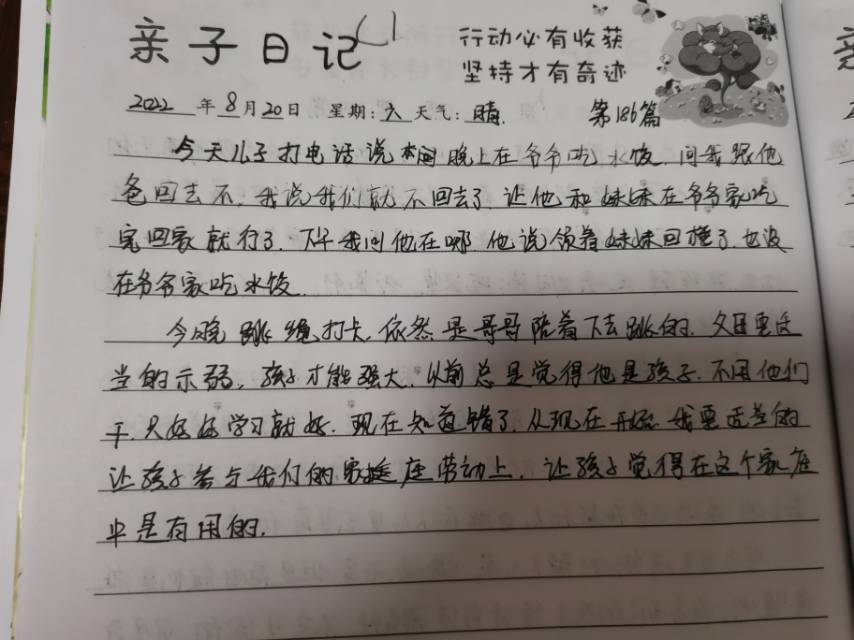 亲子日记
行动必有收获
坚持才有奇迹
2022年8月20日 星期:六 天气:晴 第186篇
今天儿子打电话说 晚上在爷爷吃水饺.问我跟他
爸回去不.我说我们就不回去了.让他和妹妹在爷爷家吃
完回家就行了.下午我问他在哪.他说领着妹妹回 了.也没
在爷爷家吃水饺.
今晚跳绳打卡.依然是哥哥陪着下去跳的. 要适
当的示弱.孩子才能强大.以前总是觉得他是孩子.不用他们
干.只好好学习就好.现在知道错了.从现在开始我要适当的
让孩子参与我们的家庭 劳动上.让孩子觉得在这个家庭
中是有用的.